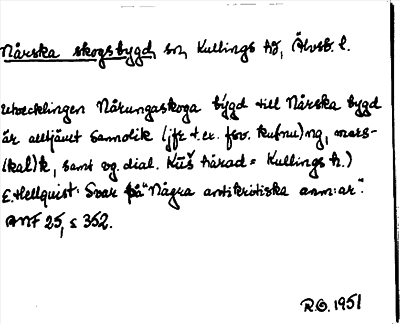 Nårska skogsbygd, sn, Kullings hd, Älvsb. l.
Utvecklingen Nårungaskoga bygd till Nårska bygd
är alltjämt sannolik (jfr t.ex. fsv. kufnu)ng, mars-
(kal)k, samt vg. dial. Küš härad = Kullings h.)
E. Hellquist: Svar på "Några antikritiska anm:ar".
ANF 25, s 352.
R.O. 1951